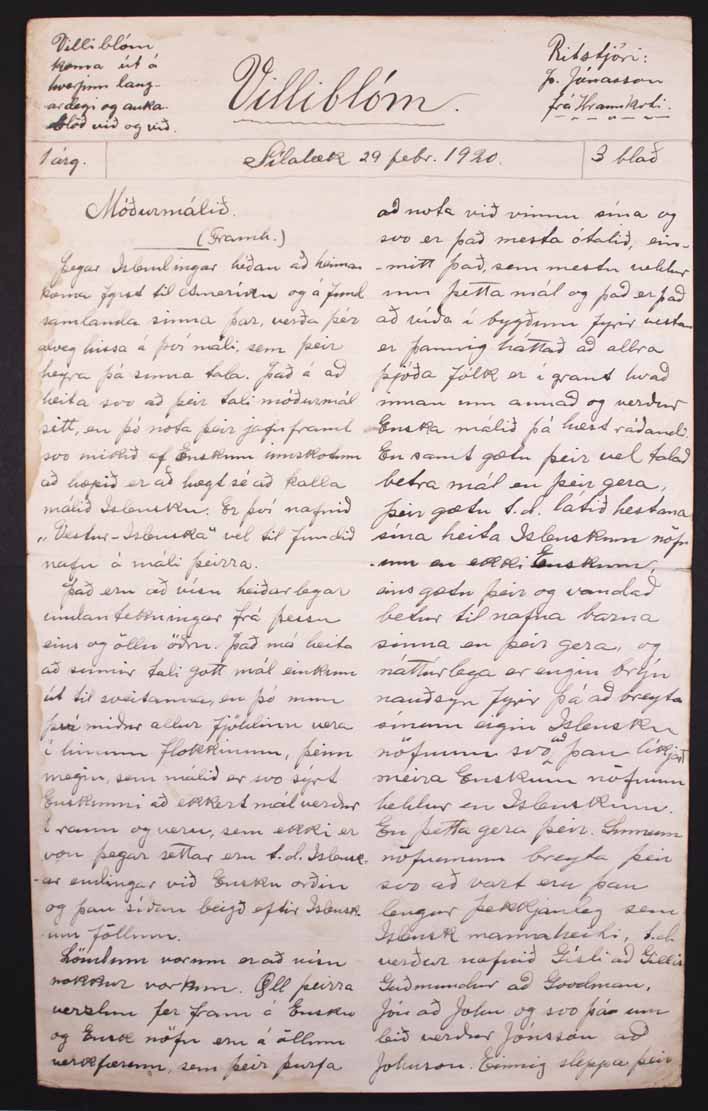 Villiblóm
koma út á
hverjum laug-
ardegi og auka-
blöð við og við.
Villiblóm.
Ritstjóri:
Þ. Jónasson
frá Hraunkoti.
1 árg.
Sílalæk 29 febr. 1920.
3 blað
Móðurmálið.
(Framh.)
Þegar Islendingar héðan að heiman
koma fyrst til Ameríku og á fund
samlanda sinna þar, verða þeir
alveg hissa á því máli, sem þeir
heyra þá sumra tala. Það á að
heita svo að þeir tali móðurmál
sitt, en þó nota þeir jafnframt
svo mikið af Enskum innskotum
að hæpið er að hægt sé að kalla
málið Islensku. Er því nafnið
„Vestur-Islenska" vel til fundið
nafn á máli þeirra.
Það eru að vísu heiðarlegar
undantekningar frá þessu
eins og öllu öðru. Það má heita
að sumir tali gott mál einkum
út til sveitanna, en þó mun
því miður allur fjöldinn vera
í hinum flokknum, þeim
megin, sem málið er svo
Enskunni að ekkert mál verður
í raun og veru, sem ekki er
von þegar settar eru t.d. Islensk-
ar endingar við Ensku orðin
og þau síðan beigð eftir Islensk-
um föllum.
Löndum vorum er að vísu
nokkur vorkun. Öll þeirra
verzlun fer fram á Ensku
og Ensk nöfn eru á öllum
verkfærum, sem þeir þurfa
að nota við vinnu sína og
svo er það mesta ótalið, ein-
-mitt það, sem mestu veldur
um þetta mál og það er það
að víða í bygðum fyrir vestan
er þannig háttað að allra
þjóða fólk er í grant hvað
innan um annað og verður
Enska málið þá hæst ráðandi.
En samt gætu þeir vel talað
betra mál en þeir gera,
þeir gætu t.d. látið hestana
sína heita Islenskum nöfn-
um en ekki Enskum,
eins gætu þeir og vandað
betur til nafna barna
sinna en þeir gera, og
náttúrlega er eingin brýn
nauðsyn fyrir þá að breyta
sínum eigin Islensku
nöfnum svo að þau líkjast
meira Enskum nöfnum
heldur en Islenskum.
En þetta gera þeir. Sumum
nöfnunum breyta þeir
svo að vart eru þau
lengur þekkjanleg sem
Islensk mannaheiti, t.d.
verður nafnið Gísli að Gillis
Guðmundur að Goodman,
Jón að John og svo þá um
leið verður Jónsson að
Johnson. Einnig sleppa þeir